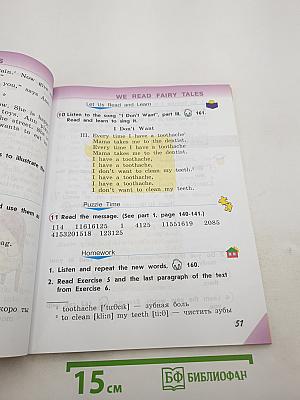 WE READ FAIRY TALES
Let Us Read and Learn
10 Listen to the song "I Don't Want", part III, 161.
Read and learn to sing it.
I Don't Want
III. Every time I have a toothache¹
Mama takes me to the dentist.
Every time I have a toothache
Mama takes me to the dentist.
I have a toothache,
I have a toothache,
I don't want to clean my teeth.²
I have a toothache,
I have a toothache,
I don't want to clean my teeth.
Puzzle Time
11 Read the message. (See part 1, page 140-141.)
114 11616125 1 4125 11551619 2085
4153201518 123125
Homework
1. Listen and repeat the new words, 160.
2. Read Exercise 5 and the last paragraph of the text
from Exercise 6.
¹ toothache ['tu:θeɪk] — зубная боль
² to clean [kli:n] my teeth [ti:θ] — чистить зубы
51
15 СМ
БФ БИБЛИОФАН